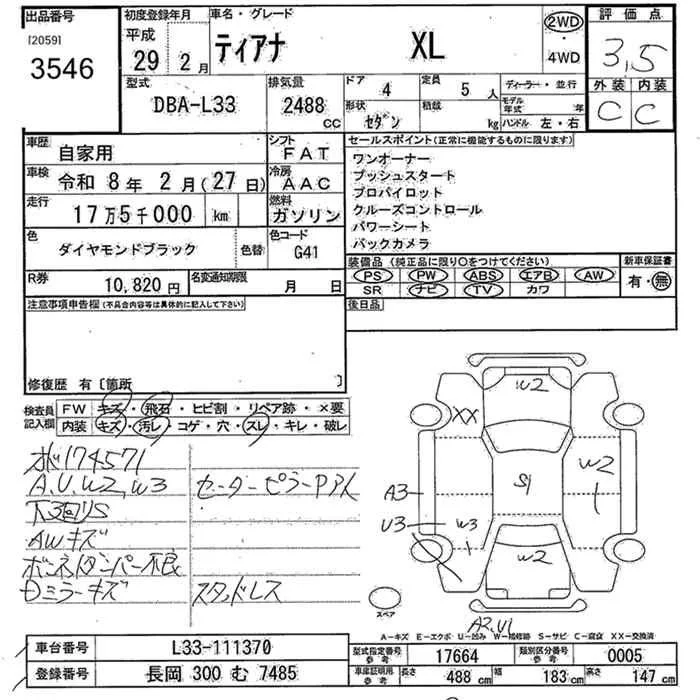 出品番号
[2059]
3546
初度登録年月
平成
29 2月
車名・グレード
ティアナ XL
2WD
4WD
評価点
3.5
外装 内装
C C
型式
DBA-L33
排気量
2488 CC
ドア 4
定員 5 人
形状 セダン
積載 kg
ディーラー・並行
モデル年式 年
ハンドル 左・右
車歴 自家用
シフト FAT
車検 令和 8年 2月(27日)
冷房 AAC
走行 17万5千000 km
燃料 ガソリン
色 ダイヤモンドブラック 色替
色コード G41
R券 10,820円
名変通知期限 月 日
セールスポイント(正常に機能するものに限ります)
ワンオーナー
プッシュスタート
プロパイロット
クルーズコントロール
パワーシート
バックカメラ
装備品 (純正品に限り○をつけてください)
PS PW ABS エアB AW
SR ナビ TV カワ
新車保証書
有・無
後日品
注意事項申告欄(不具合内容等は具体的に記入して下さい)
修復歴 有〔箇所 〕
検査員記入欄
FW キズ・飛石・ヒビ割・リペア跡・×要
内装 キズ・汚レ・コゲ・穴・スレ・キレ・破レ
174571
A,U,W2,W3
下3回りS
AWキズ
ボンネットダンパー不良
Dミラーキズ
センターピラーPアト
スタッドレス
W2
XX
W2
S1
A3
U3
W3
W2
スペア
A2,U1
A-キズ E-エクボ U-凹み W-補修跡 S-サビ C-腐食 XX-交換済
車台番号 L33-111370
登録番号 長岡 300 む 7485
型式指定番号 参考 17664
類別区分番号 参考 0005
車庫証明用 参考 長さ 488 cm 幅 183 cm 高さ 147 cm